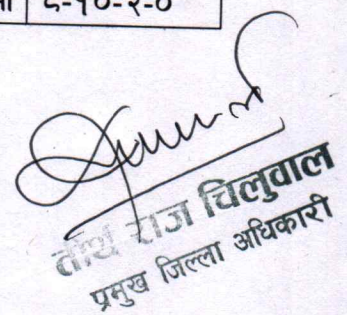 ८-१०-२-०
तीर्थ राज चिलुवाल
प्रमुख जिल्ला अधिकारी